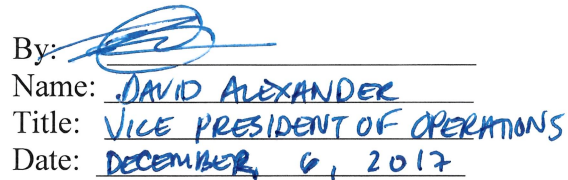 By:
Name: DAVID ALEXANDER
Title: VICE PRESIDENT OF OPERATIONS
Date: DECEMBER 6, 2017